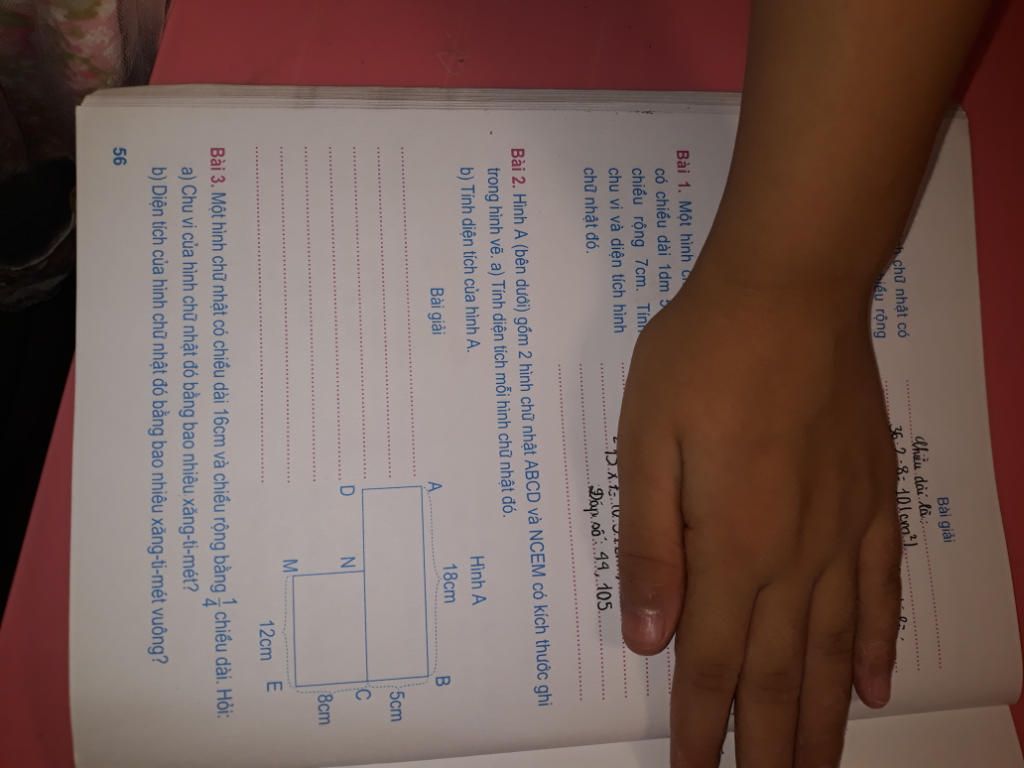 Bài giải
h chữ nhật có
Chiều dài là:
36 : 2 - 8 = 10 (cm²)
Bài 1. Một hình
có chiều dài 1dm 5
chiều rộng 7cm. Tính
chu vi và diện tích hình
chữ nhật đó.
Đáp số: 44, 105
Bài 2. Hình A (bên dưới) gồm 2 hình chữ nhật ABCD và NCEM có kích thước ghi
trong hình vẽ. a) Tính diện tích mỗi hình chữ nhật đó.
b) Tính diện tích của hình A.
Bài giải
Hình A
18cm
A
B
5cm
D
N
C
8cm
M
E
12cm
Bài 3. Một hình chữ nhật có chiều dài 16cm và chiều rộng bằng 1/4 chiều dài. Hỏi:
a) Chu vi của hình chữ nhật đó bằng bao nhiêu xăng-ti-mét?
b) Diện tích của hình chữ nhật đó bằng bao nhiêu xăng-ti-mét vuông?
56